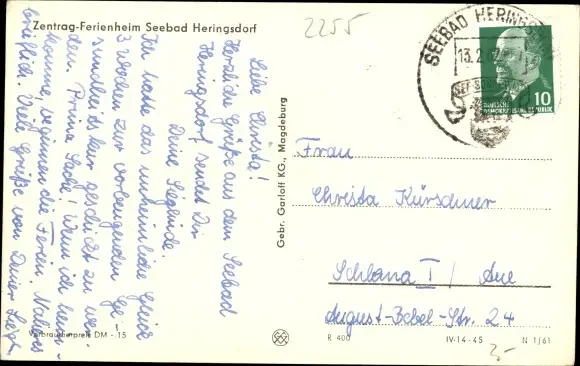 Zentrag-Ferienheim Seebad Heringsdorf
2255
Liebe Christa!
Herzliche Grüße aus dem Seebad
Heringsdorf sendet Dir
Deine Sieglinde.
Ich hatte das unheimliche Glück
3 Wochen zur vorbeugenden Ge-
sundheitskur geschickt zu wer-
den. Prima Sache! Wenn ich heim-
komme, beginnen die Ferien. Näheres
brieflich. Viele Grüße von Deiner
Verbraucherpreis DM -.15
Gebr. Garloff KG., Magdeburg
SEEBAD HERINGSDORF
13.2.
DEUTSCHE
DEMOKRATISCHE REPUBLIK
10
Frau
Christa Kürschner
Schlema I / Aue
August-Bebel-Str. 24
R 400
IV-14-45
N 1/61
2,-